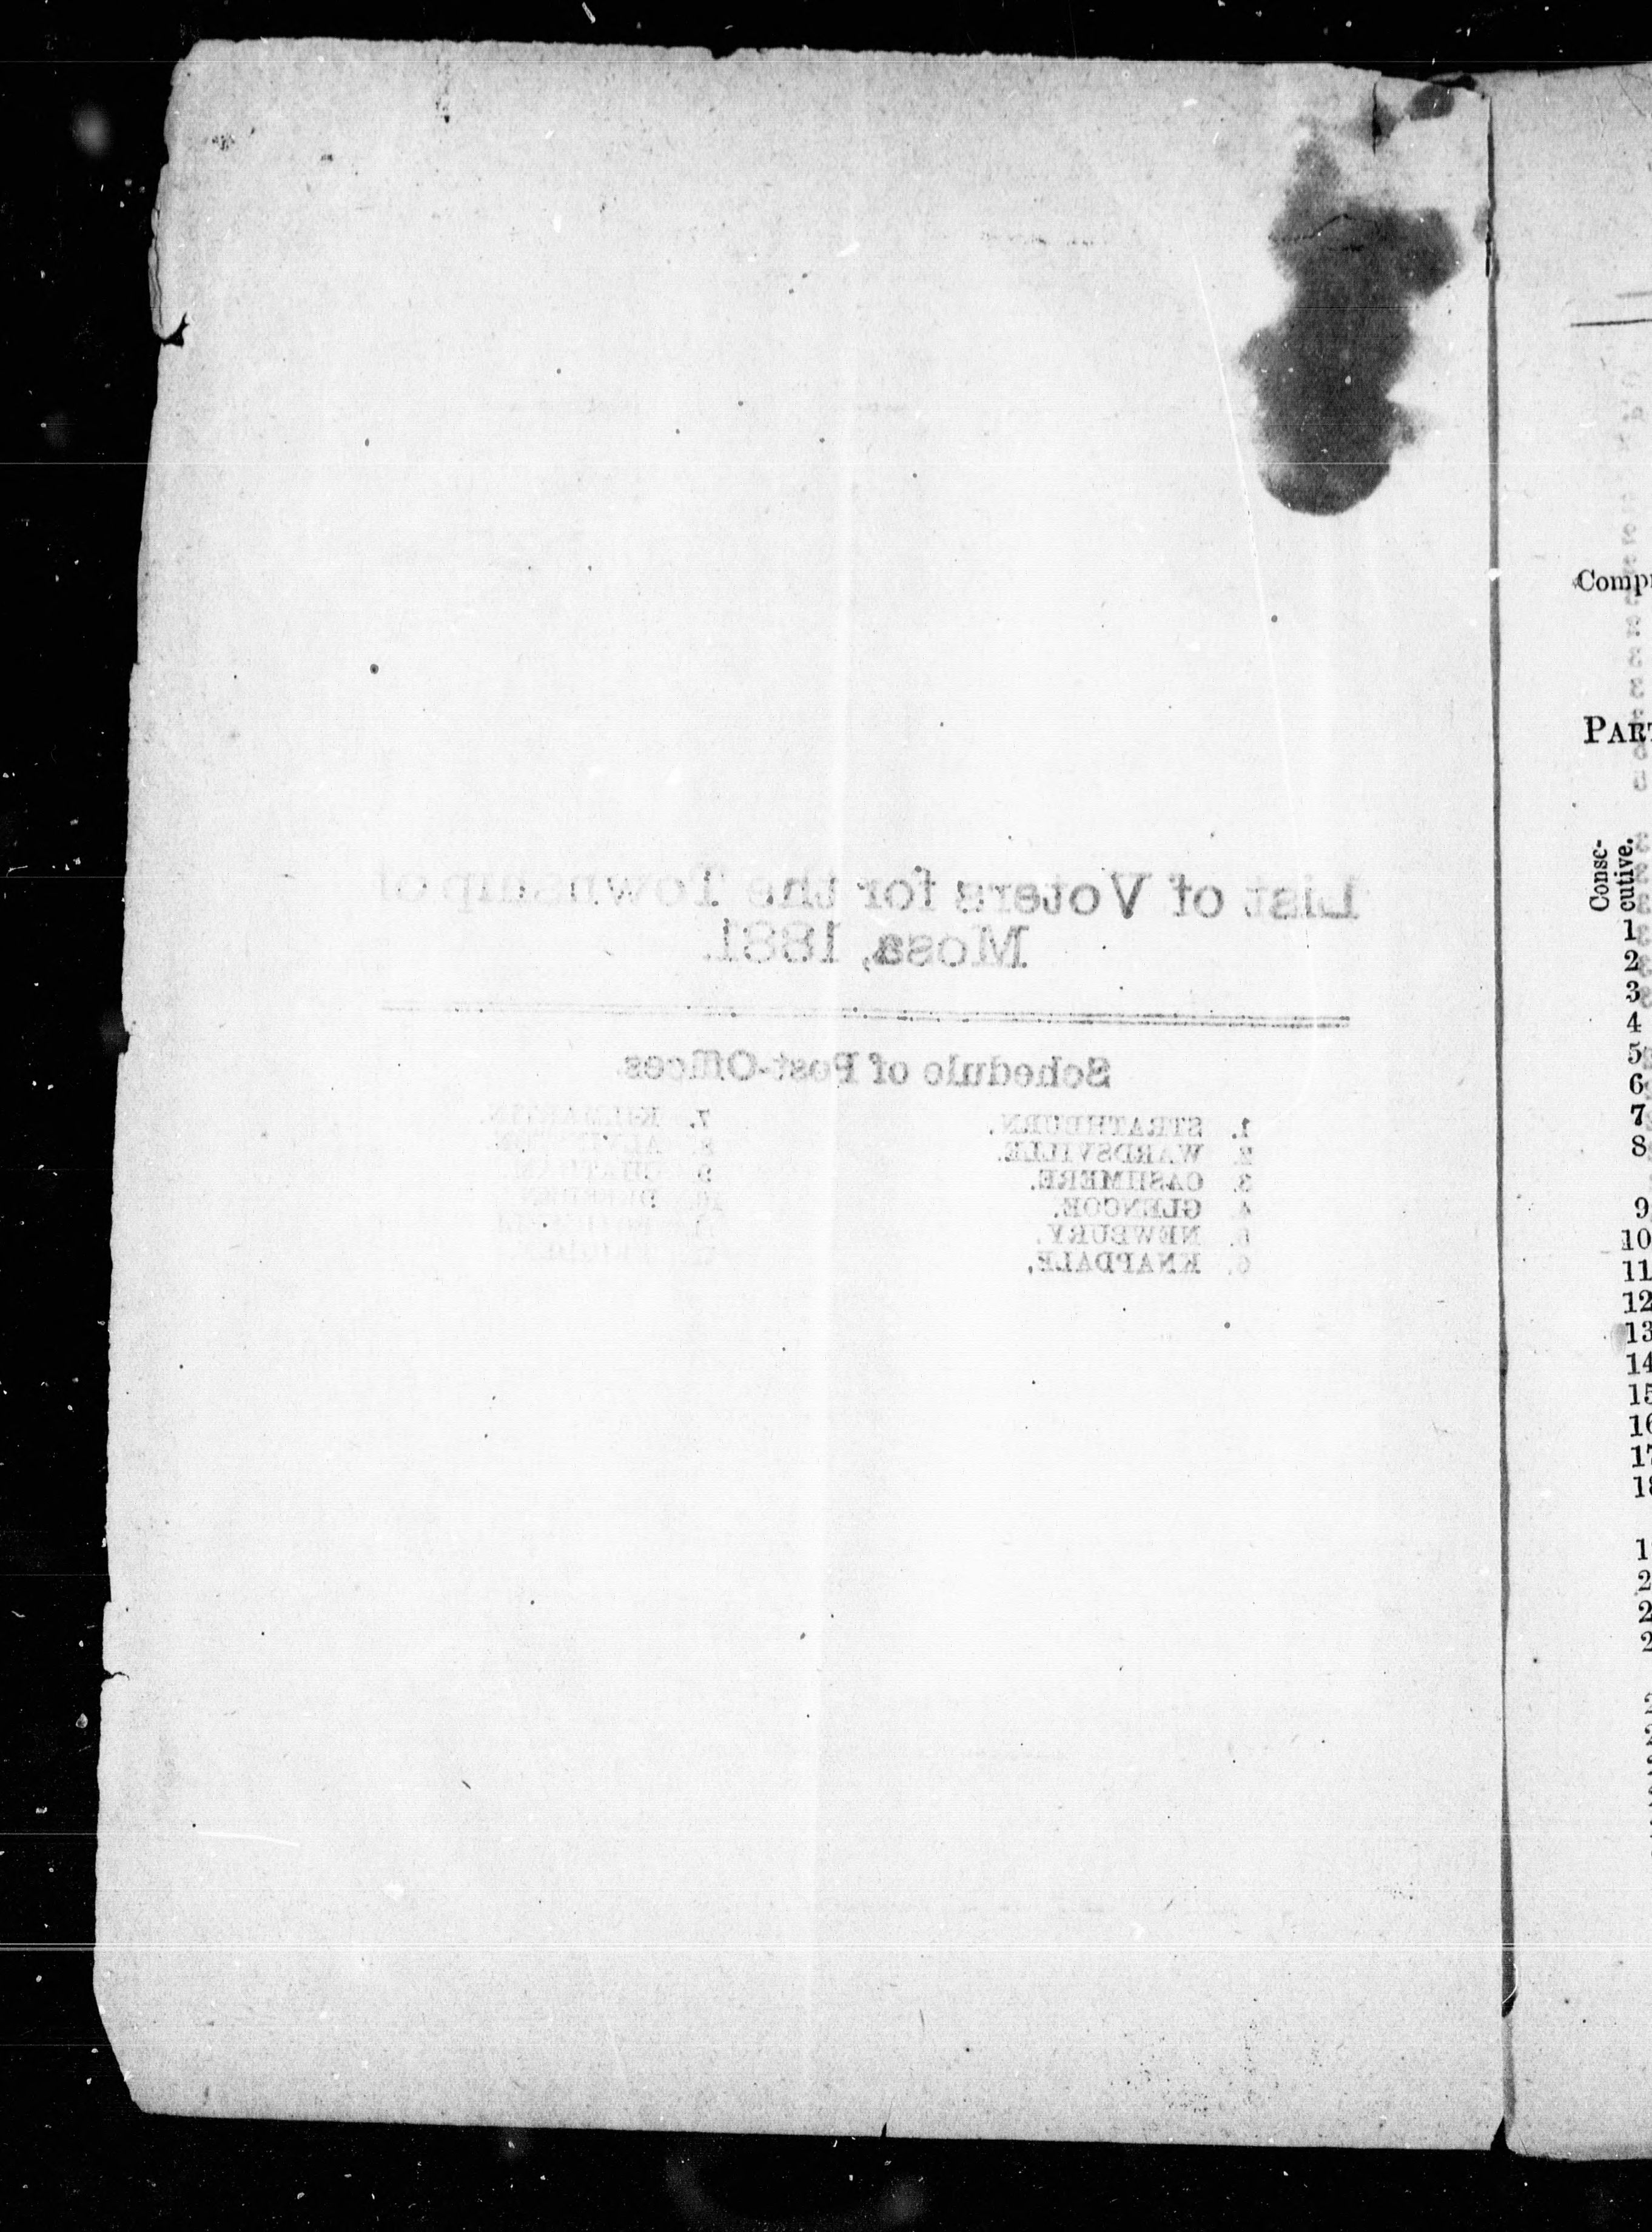 List of Voters for the Township of
Mosa, 1881.
Schedule of Post-Offices.
1. STRATHBURN.
2. WARDSVILLE.
3. CASHMERE.
4. GLENCOE.
5. NEWBURY.
6. KNAPDALE,
7. KILMARTIN.
8.
9.
10.
11.
12.
Compr
PART
Conse-
cutive.
1
2
3
4
5
6
7
8
9
10
11
12
13
14
15
16
17
18
1
2
2
2